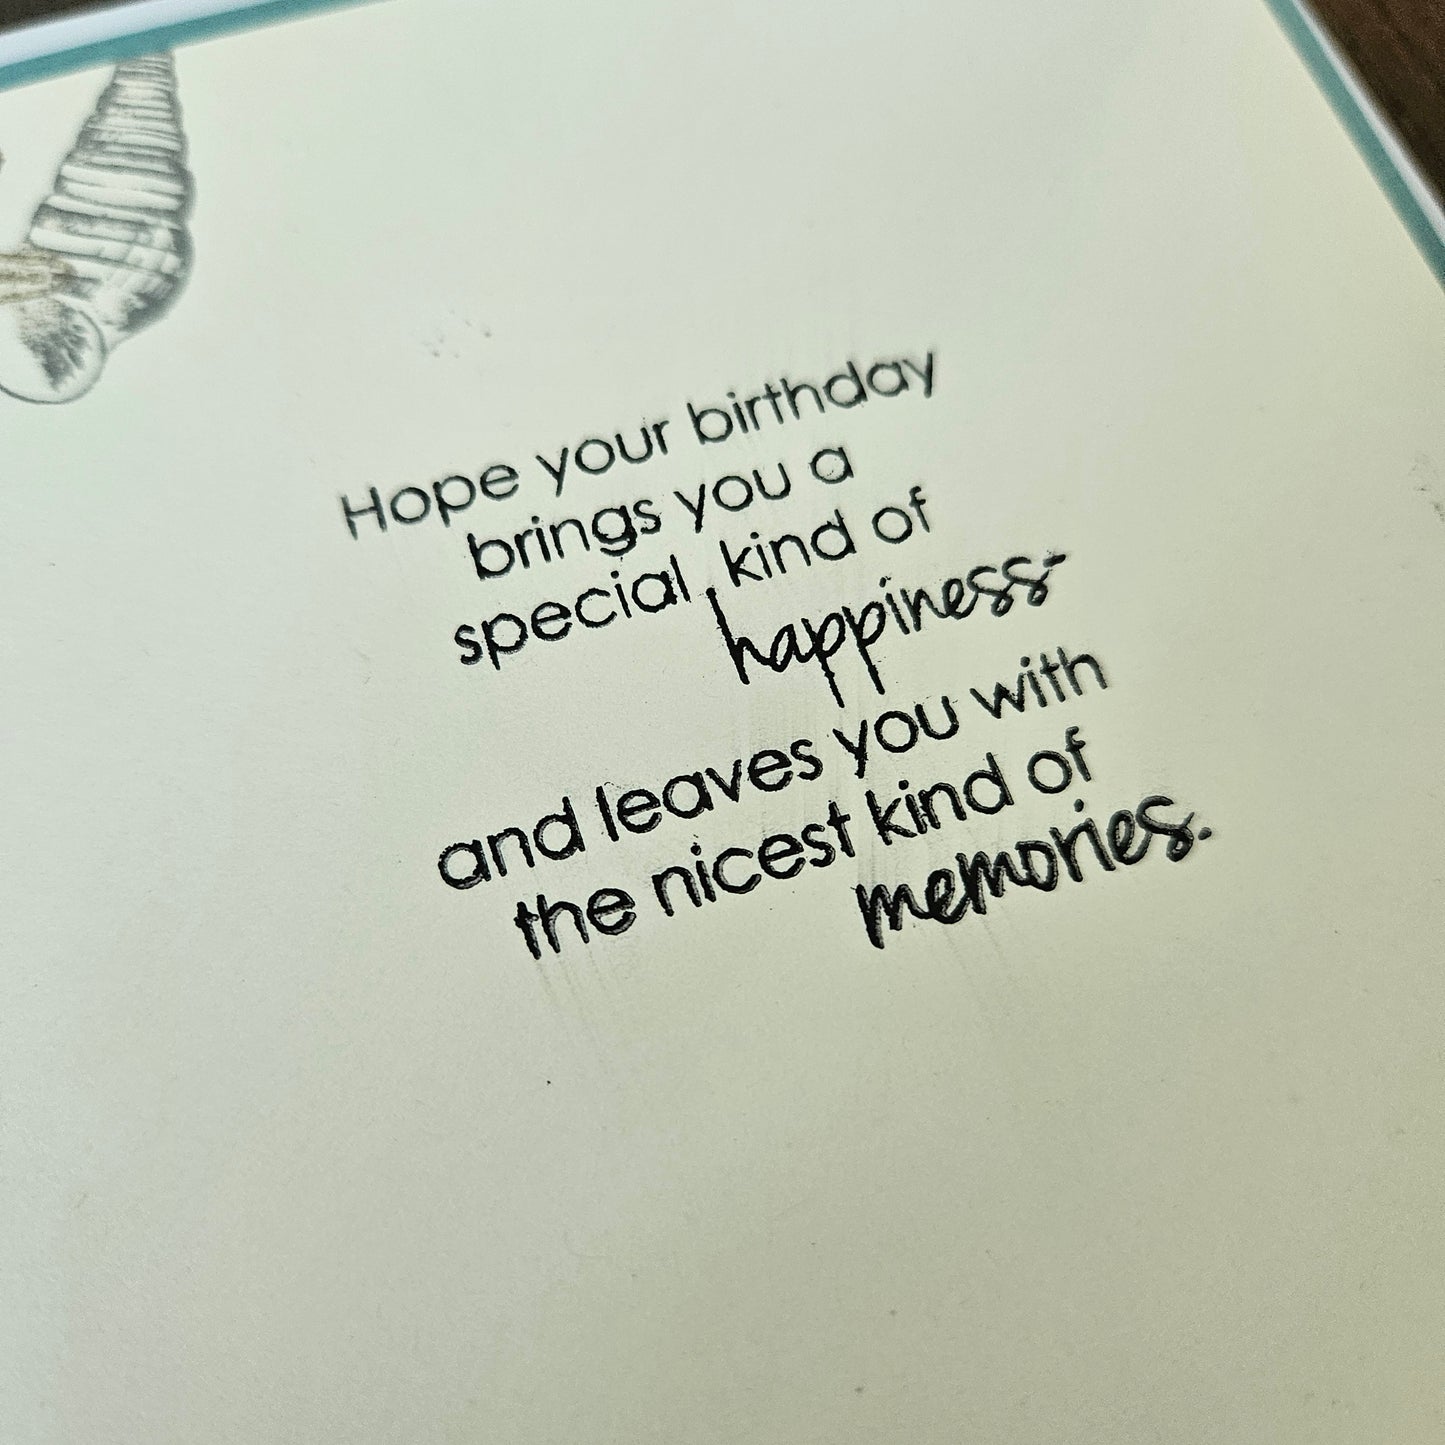 Hope your birthday
brings you a
special kind of
happiness-
and leaves you with
the nicest kind of
memories.